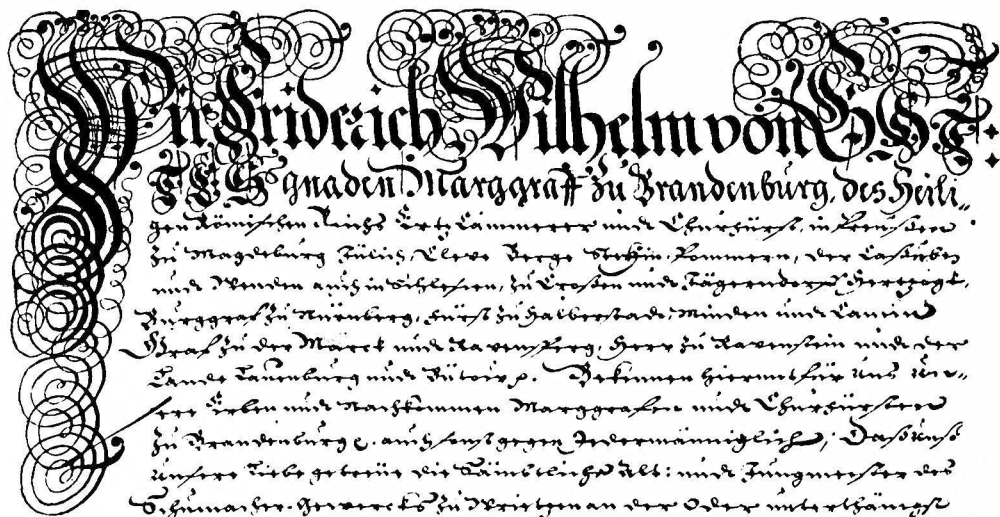 Wir Friderich Wilhelm von GOT-
TES gnaden Marggraff zu Brandenburg, des Heili-
gen Römischen Reichs Ertz Cämmerer undt Churfürst, in Preußen
zu Magdeburg Jülich, Cleve Berge Stettin, Pommern, der Caßuben
undt Wenden auch in Schlesien, zu Croßen undt Jägerndorff Hertzogk,
Burggraf zu Nürnberg, Fürst zu Halberstadt, Minden undt Camin
Graf zu der Marck undt Ravensperg, Herr zu Ravenstein undt der
Lande Lauenburg undt Bütow p. Bekennen hiermit für Uns Un-
sere Erben undt Nachkommen Marggrafen undt Churfürsten
zu Brandenburg p. auch sonst gegen Jedermänniglich, Daß Unß
Unsere Liebe getreüe die Sämbtliche Alt: undt Jungmeister des
Schumacher-Gewercks zu Wrietzen an der Oder unterthängst